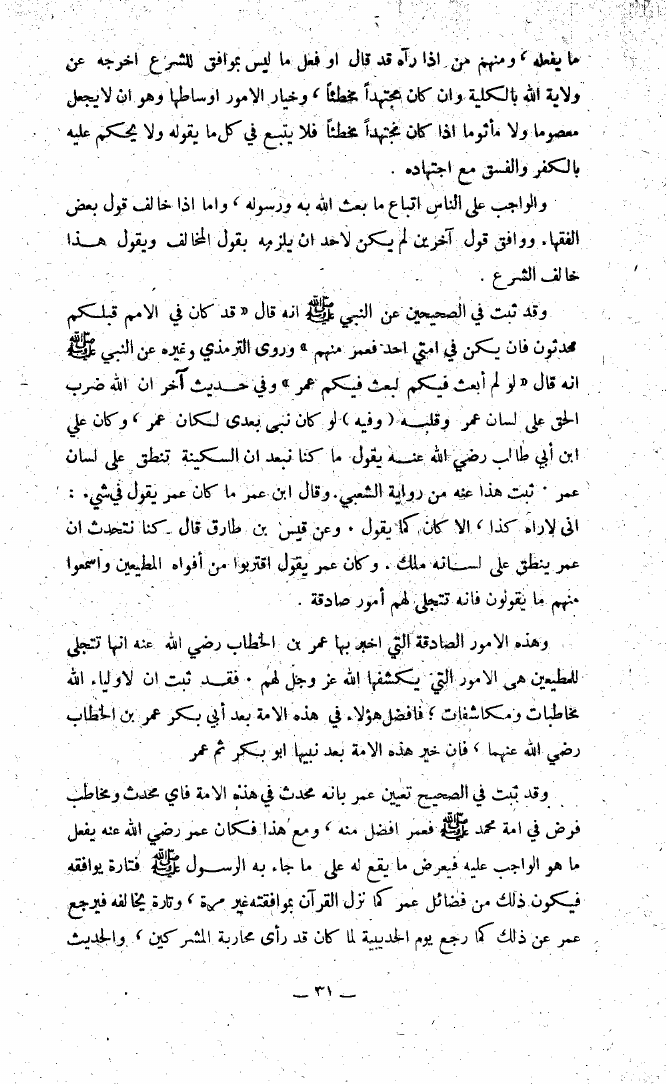 ما يفعله ، ومنهم من اذا رآه قد قال او فعل ما ليس بموافق للشرع اخرجه عن
ولاية الله بالكلية وان كان مجتهداً مخطئاً ، وخيار الامور اوساطها وهو ان لايجعل
معصوما ولا مأثوما اذا كان مجتهداً مخطئاً فلا يتبع في كل ما يقوله ولا يحكم عليه
بالكفر والفسق مع اجتهاده .
والواجب على الناس اتباع ما بعث الله به ورسوله ، واما اذا خالف قول بعض
الفقهاء ووافق قول آخرين لم يكن لاحد ان يلزمه بقول المخالف ويقول هذا
خالف الشرع .
وقد ثبت في الصحيحين عن النبي ﷺ انه قال « قد كان في الامم قبلكم
محدثون فان يكن في امتي احد فعمر منهم » وروى الترمذي وغيره عن النبي ﷺ
انه قال « لو لم أبعث فيكم لبعث فيكم عمر » وفي حديث آخر ان الله ضرب
الحق على لسان عمر وقلبه ( وفيه ) لو كان نبى بعدى لكان عمر ، وكان علي
ابن أبي طالب رضي الله عنه يقول ما كنا نبعد ان السكينة تنطق على لسان
عمر . ثبت هذا عنه من رواية الشعبي . وقال ابن عمر ما كان عمر يقول في شيء :
انى لاراه كذا ، الا كان كما يقول . وعن قيس بن طارق قال كنا نتحدث ان
عمر ينطق على لسانه ملك . وكان عمر يقول اقتربوا من أفواه المطيعين واسمعوا
منهم ما يقولون فانه تتجلى لهم أمور صادقة .
وهذه الامور الصادقة التي اخبر بها عمر بن الخطاب رضي الله عنه انها تتجلى
للمطيعين هى الامور التي يكشفها الله عز وجل لهم . فقد ثبت ان لاولياء الله
مخاطبات ومكاشفات ؛ فافضل هؤلاء في هذه الامة بعد أبي بكر عمر بن الخطاب
رضي الله عنهما ، فان خير هذه الامة بعد نبيها ابو بكر ثم عمر
وقد ثبت في الصحيح تعيين عمر بانه محدث في هذه الامة فاي محدث ومخاطب
فرض في امة محمد ﷺ فعمر افضل منه ، ومع هذا فكان عمر رضي الله عنه يفعل
ما هو الواجب عليه فيعرض ما يقع له على ما جاء به الرسول ﷺ فتارة يوافقه
فيكون ذلك من فضائل عمر كما نزل القرآن بموافقته غير مرة ، وتارة يخالفه فيرجع
عمر عن ذلك كما رجع يوم الحديبية لما كان قد رأى محاربة المشركين ، والحديث
— ٣١ —